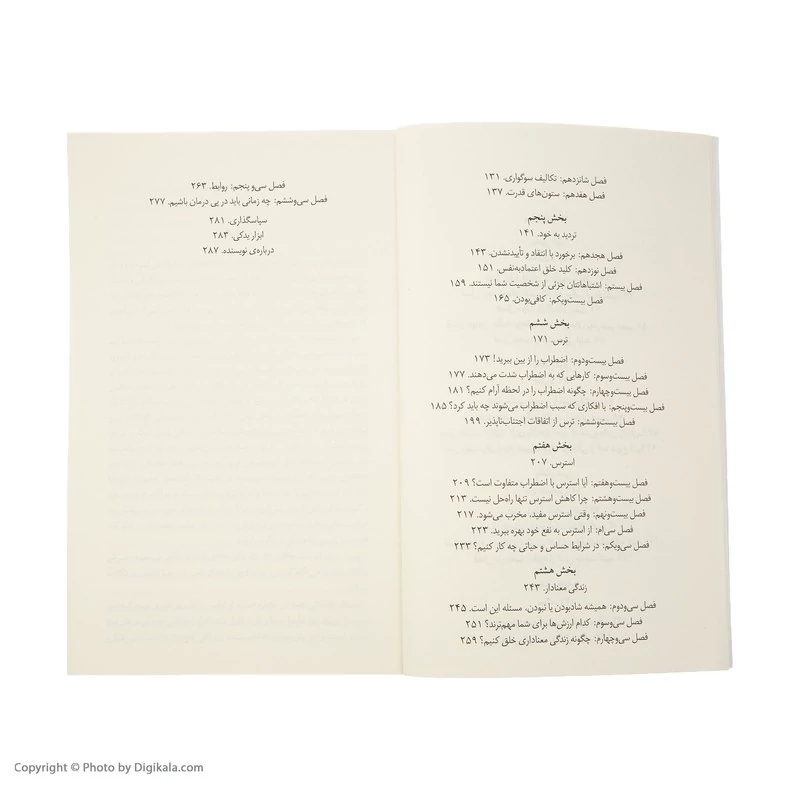 فصل شانزدهم: تکالیف سوگواری. ۱۳۱
فصل هفدهم: ستون‌های قدرت. ۱۳۷
بخش پنجم
تردید به خود. ۱۴۱
فصل هجدهم: برخورد با انتقاد و تأییدنشدن. ۱۴۳
فصل نوزدهم: کلید خلق اعتمادبه‌نفس. ۱۵۱
فصل بیستم: اشتباهاتتان جزئی از شخصیت شما نیستند. ۱۵۹
فصل بیست‌ویکم: کافی‌بودن. ۱۶۵
بخش ششم
ترس. ۱۷۱
فصل بیست‌ودوم: اضطراب را از بین ببرید! ۱۷۳
فصل بیست‌وسوم: کارهایی که به اضطراب شدت می‌دهند. ۱۷۷
فصل بیست‌وچهارم: چگونه اضطراب را در لحظه آرام کنیم؟ ۱۸۱
فصل بیست‌وپنجم: با افکاری که سبب اضطراب می‌شوند چه باید کرد؟ ۱۸۵
فصل بیست‌وششم: ترس از اتفاقات اجتناب‌ناپذیر. ۱۹۹
بخش هفتم
استرس. ۲۰۷
فصل بیست‌وهفتم: آیا استرس با اضطراب متفاوت است؟ ۲۰۹
فصل بیست‌وهشتم: چرا کاهش استرس تنها راه‌حل نیست. ۲۱۳
فصل بیست‌ونهم: وقتی استرس مفید، مخرب می‌شود. ۲۱۷
فصل سی‌ام: از استرس به نفع خود بهره ببرید. ۲۲۳
فصل سی‌ویکم: در شرایط حساس و حیاتی چه کار کنیم؟ ۲۳۳
بخش هشتم
زندگی معنادار. ۲۴۳
فصل سی‌ودوم: همیشه شادبودن یا نبودن، مسئله این است. ۲۴۵
فصل سی‌وسوم: کدام ارزش‌ها برای شما مهم‌ترند؟ ۲۵۱
فصل سی‌وچهارم: چگونه زندگی معناداری خلق کنیم؟ ۲۵۹
فصل سی‌و پنجم: روابط. ۲۶۳
فصل سی‌وششم: چه زمانی باید در پی درمان باشیم. ۲۷۷
سپاسگذاری. ۲۸۱
ابزار یدکی. ۲۸۳
درباره‌ی نویسنده. ۲۸۷
Copyright © Photo by Digikala.com